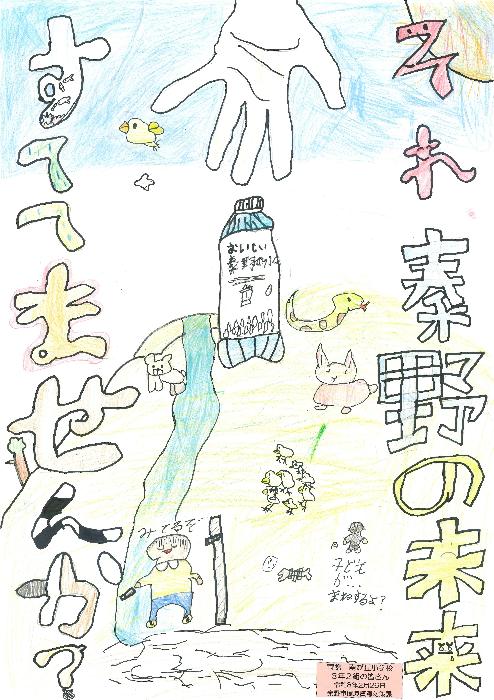 それ秦野の未来
すててませんか?
おいしい
みてるぞ
子ども
が…
まねするよ?
3年2組の皆さん